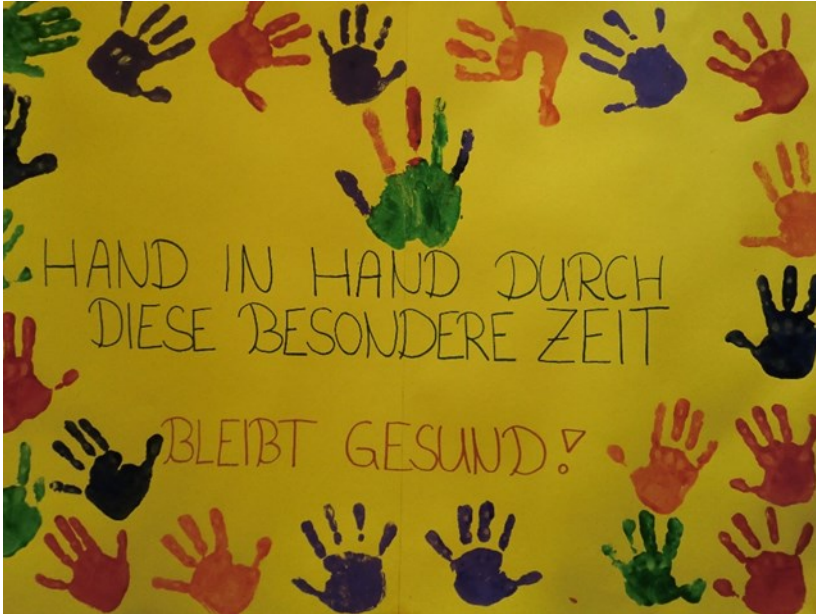 HAND IN HAND DURCH
DIESE BESONDERE ZEIT
BLEIBT GESUND!